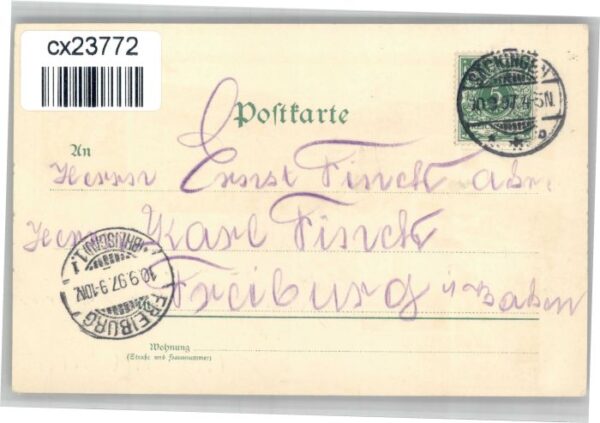 cx23772
SÄCKINGEN
10.9.97.4-5N.
5
Postkarte
An
Herrn Ernst Finck
Herrn Karl Finck
Freiburg i Baden
FREIBURG (BREISGAU) 1.
10.9.97.9-10N.
Wohnung
(Straße und Hausnummer)